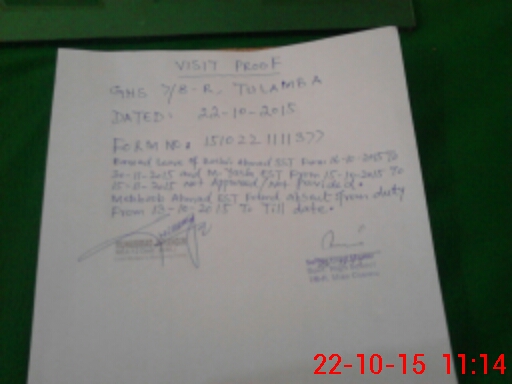 VISIT PROOF
GHS 7/8-R. TULAMBA
DATED: 22-10-2015
FORM NO: 151022111377
Leave of Ahmad EST From 16-10-2015 To
20-11-2015 and M. EST From 15-10-2015 To
not Approved/Not Provided.
Mehboob Ahmad EST absent from duty
From 13-10-2015 To Till date.
22-10-15 11:14